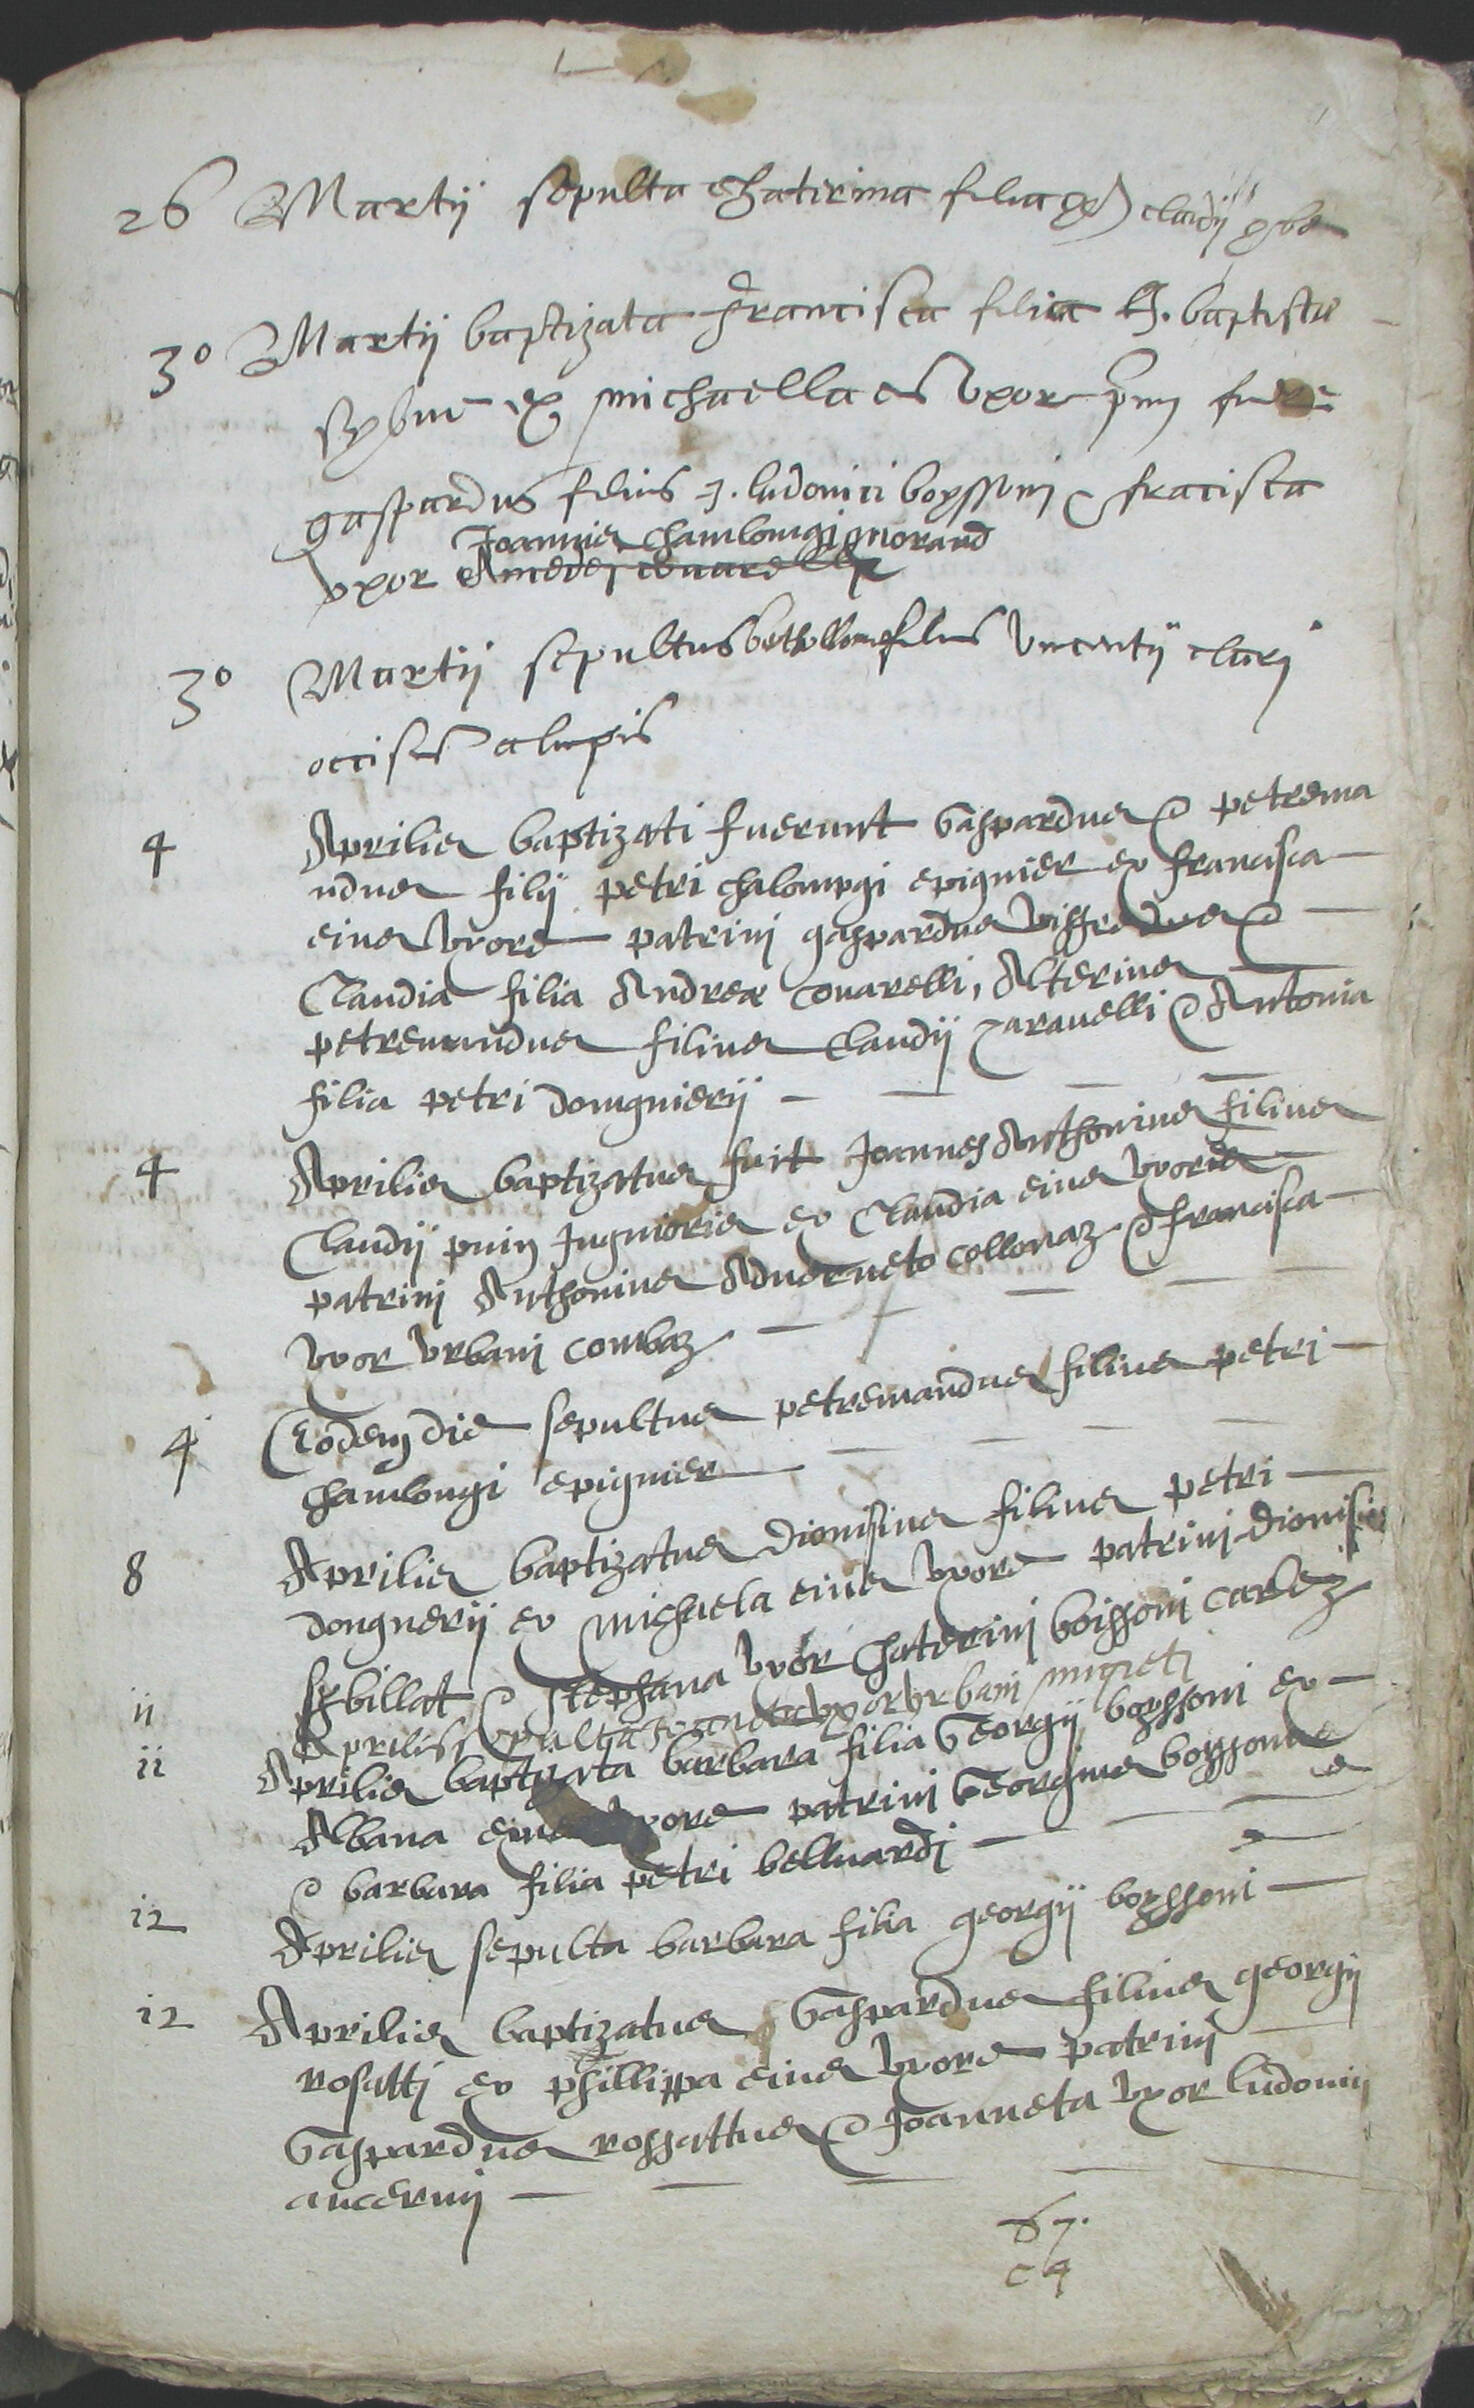 26 Martij sepulta Chaterina filia claudij
30 Martij baptizata Francisca filia baptiste
ex michaella eius uxore fuere
gaspardus filius ludovici boyssonj & fracisca
Joannis chamlongj morand
uxor Amedej
30 Martij sepultus filius vincentij clarj
occisus a lupis
4 Aprilis baptizati fuerunt Gaspardus & petrema
ndus filij petri chalongi epignier ex francisca
eius uxore patrinj gaspardus &
Claudia filia Andreæ Covarelli, Alterius
petremandus filius Claudij zaravelli & Antonia
filia petri Dongnierij
4 Aprilis baptizatus fuit Joannes Anthonius filius
Claudij Jugnioris ex Claudia eius uxoris
patrinj Anthonius collonaz & francisca
uxor urbanj combaz
4 Eodem die sepultus petremandus filius petrj
chamlongi epignier
8 Aprilis baptizatus Dionisius filius petri
dongnerij ex michaela eius uxore patrinj Dionisius
sybillat & stephana uxor chaterinj boissonj carlez
ii Aprilis sepulta Joaneta uxor urbani mugnetj
ii Aprilis baptizata barbara filia Georgij boyssoni ex
Albana eius uxore patrinj Georgius boyssonus
& barbara filia petri belluardj
i2 Aprilis sepulta barbara filia georgij boyssoni
i2 Aprilis baptizatus Gaspardus filius georgij
rosattj ex phillippa eius uxore patrinj
Gaspardus rossattus & Joanneta uxor ludovicj
ancernij
67.
c 4